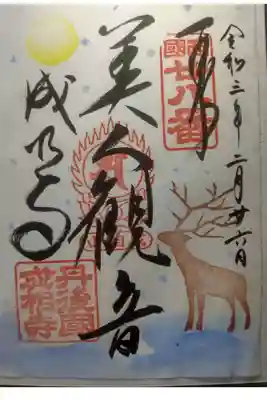 令和三年二月廿六日
西國廿八番
美人観音
成相寺
丹後國
成相寺